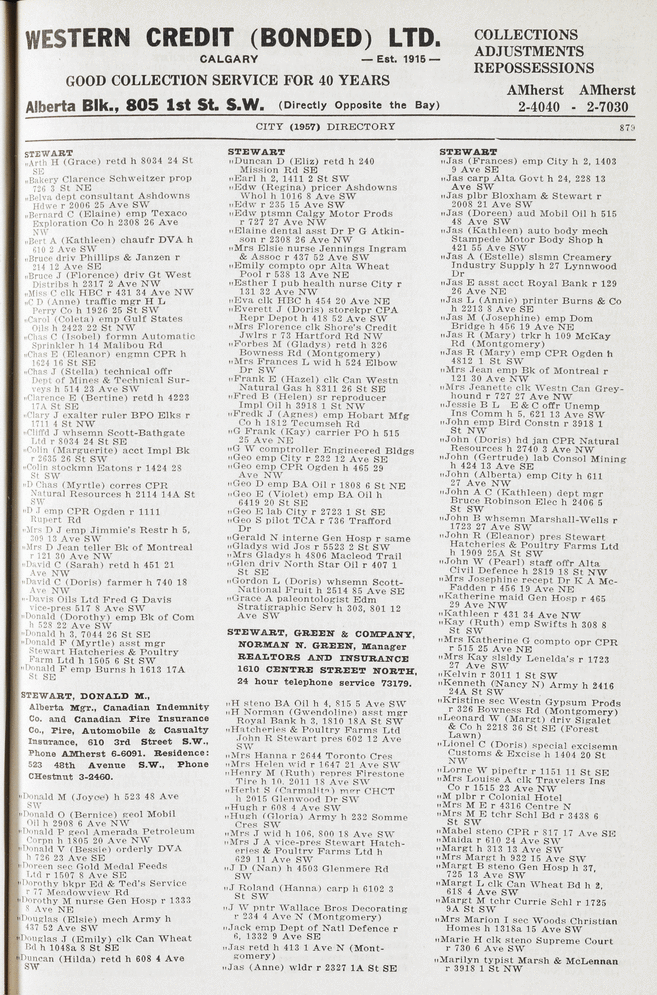 WESTERN CREDIT (BONDED) LTD.
CALGARY — Est. 1915 —
GOOD COLLECTION SERVICE FOR 40 YEARS
Alberta Blk., 805 1st St. S.W. (Directly Opposite the Bay)
COLLECTIONS
ADJUSTMENTS
REPOSSESSIONS
AMherst AMherst
2-4040 - 2-7030
CITY (1957) DIRECTORY 879
STEWART
"Arth H (Grace) retd h 8034 24 St
SE
"Bakery Clarence Schweitzer prop
726 3 St NE
"Belva dept consultant Ashdowns
Hdwe r 2006 25 Ave SW
"Bernard C (Elaine) emp Texaco
Exploration Co h 2308 26 Ave
NW
"Bert A (Kathleen) chaufr DVA h
610 2 Ave SW
"Bruce driv Phillips & Janzen r
214 12 Ave SE
"Bruce J (Florence) driv Gt West
Distribs h 2317 2 Ave NW
"Miss C clk HBC r 431 34 Ave NW
"C D (Anne) traffic mgr H L
Perry Co h 1926 25 St SW
"Carol (Coleta) emp Gulf States
Oils h 2423 22 St NW
"Chas C (Isobel) formn Automatic
Sprinkler h 14 Malibou Rd
"Chas E (Eleanor) engmn CPR h
1624 16 St SE
"Chas J (Stella) technical offr
Dept of Mines & Technical Sur-
veys h 514 23 Ave SW
"Clarence E (Bertine) retd h 4223
17A St SE
"Clary J exalter ruler BPO Elks r
1711 4 St NW
"Cliffd J whsemn Scott-Bathgate
Ltd r 8034 24 St SE
"Colin (Marguerite) acct Impl Bk
r 2635 26 St SW
"Colin stockmn Eatons r 1424 28
St SW
"D Chas (Myrtle) corres CPR
Natural Resources h 2114 14A St
SW
"D J emp CPR Ogden r 1111
Rupert Rd
"Mrs D J emp Jimmie's Restr h 5,
209 13 Ave SW
"Mrs D Jean teller Bk of Montreal
r 121 30 Ave NW
"David C (Sarah) retd h 451 21
Ave NW
"David C (Doris) farmer h 740 18
Ave NW
"Davis Oils Ltd Fred G Davis
vice-pres 517 8 Ave SW
"Donald (Dorothy) emp Bk of Com
h 528 22 Ave SW
"Donald h 3, 7044 26 St SE
"Donald F (Myrtle) asst mgr
Stewart Hatcheries & Poultry
Farm Ltd h 1505 6 St SW
"Donald F emp Burns h 1613 17A
St SE
STEWART, DONALD M.,
Alberta Mgr., Canadian Indemnity
Co. and Canadian Fire Insurance
Co., Fire, Automobile & Casualty
Insurance, 610 3rd Street S.W.,
Phone AMherst 6-6091. Residence:
523 48th Avenue S.W., Phone
CHestnut 3-2460.
"Donald M (Joyce) h 523 48 Ave
SW
"Donald O (Bernice) geol Mobil
Oil h 2908 6 Ave NW
"Donald P geol Amerada Petroleum
Corpn h 1805 20 Ave NW
"Donald V (Bessie) orderly DVA
h 726 23 Ave SE
"Doreen sec Gold Medal Feeds
Ltd r 1507 8 Ave SE
"Dorothy bkpr Ed & Ted's Service
r 77 Meadowview Rd
"Dorothy M nurse Gen Hosp r 1333
8 Ave NE
"Douglas (Elsie) mech Army h
437 52 Ave SW
"Douglas J (Emily) clk Can Wheat
Bd h 1048a 8 St SE
"Duncan (Hilda) retd h 608 4 Ave
SW
STEWART
"Duncan D (Eliz) retd h 240
Mission Rd SE
"Earl h 2, 1411 2 St SW
"Edw (Regina) pricer Ashdowns
Whol h 1016 8 Ave SW
"Edw r 235 15 Ave SW
"Edw ptsmn Calgy Motor Prods
r 727 27 Ave NW
"Elaine dental asst Dr P G Atkin-
son r 2308 26 Ave NW
"Mrs Elsie nurse Jennings Ingram
& Assoc r 437 52 Ave SW
"Emily compto opr Alta Wheat
Pool r 538 13 Ave NE
"Esther I pub health nurse City r
131 32 Ave NW
"Eva clk HBC h 454 20 Ave NE
"Everett J (Doris) storekpr CPA
Repr Depot h 418 52 Ave SW
"Mrs Florence clk Shore's Credit
Jwlrs r 73 Hartford Rd NW
"Forbes M (Gladys) retd h 326
Bowness Rd (Montgomery)
"Mrs Frances L wid h 524 Elbow
Dr SW
"Frank E (Hazel) clk Can Westn
Natural Gas h 8311 26 St SE
"Fred B (Helen) sr reproducer
Impl Oil h 3918 1 St NW
"Fredk J (Agnes) emp Hobart Mfg
Co h 1812 Tecumseh Rd
"G Frank (Kay) carrier PO h 515
25 Ave NE
"G W comptroller Engineered Bldgs
"Geo emp City r 232 12 Ave SE
"Geo emp CPR Ogden h 465 29
Ave NW
"Geo D emp BA Oil r 1808 6 St NE
"Geo E (Violet) emp BA Oil h
6419 20 St SE
"Geo E lab City r 2723 1 St SE
"Geo S pilot TCA r 736 Trafford
Dr
"Gerald N interne Gen Hosp r same
"Gladys wid Jos r 5523 2 St SW
"Mrs Gladys h 4806 Macleod Trail
"Glen driv North Star Oil r 407 1
St SE
"Gordon L (Doris) whsemn Scott-
National Fruit h 2514 85 Ave SE
"Grace A paleontologist Edm
Stratigraphic Serv h 303, 801 12
Ave SW
STEWART, GREEN & COMPANY,
NORMAN N. GREEN, Manager
REALTORS AND INSURANCE
1610 CENTRE STREET NORTH,
24 hour telephone service 73179.
"H steno BA Oil h 4, 815 5 Ave SW
"H Norman (Gwendoline) asst mgr
Royal Bank h 3, 1810 18A St SW
"Hatcheries & Poultry Farms Ltd
John R Stewart pres 602 12 Ave
SW
"Mrs Hanna r 2644 Toronto Cres
"Mrs Helen wid r 1647 21 Ave NW
"Henry M (Ruth) repres Firestone
Tire h 10, 2011 18 Ave SW
"Herbt S (Carmalita) mgr CHCT
h 2015 Glenwood Dr SW
"Hugh r 608 4 Ave SW
"Hugh (Gloria) Army h 232 Somme
Cres SW
"Mrs J wid h 106, 800 18 Ave SW
"Mrs J A vice-pres Stewart Hatch-
eries & Poultry Farms Ltd h
629 11 Ave SW
"J D (Nan) h 4503 Glenmere Rd
SW
"J Roland (Hanna) carp h 6102 3
St SW
"J W pntr Wallace Bros Decorating
r 234 4 Ave N (Montgomery)
"Jack emp Dept of Natl Defence r
6, 1332 9 Ave SE
"Jas retd h 413 1 Ave N (Mont-
gomery)
"Jas (Anne) wldr r 2327 1A St SE
STEWART
"Jas (Frances) emp City h 2, 1403
9 Ave SE
"Jas carp Alta Govt h 24, 228 13
Ave SW
"Jas plbr Bloxham & Stewart r
2008 21 Ave SW
"Jas (Doreen) aud Mobil Oil h 515
48 Ave SW
"Jas (Kathleen) auto body mech
Stampede Motor Body Shop h
421 55 Ave SW
"Jas A (Estelle) slsmn Creamery
Industry Supply h 27 Lynnwood
Dr
"Jas E asst acct Royal Bank r 129
26 Ave NE
"Jas L (Annie) printer Burns & Co
h 2213 8 Ave SE
"Jas M (Josephine) emp Dom
Bridge h 456 19 Ave NE
"Jas R (Mary) trkr h 109 McKay
Rd (Montgomery)
"Jas R (Mary) emp CPR Ogden h
4812 1 St SW
"Mrs Jean emp Bk of Montreal r
121 30 Ave NW
"Mrs Jeanette clk Westn Can Grey-
hound r 727 27 Ave NW
"Jessie B L E & C offr Unemp
Ins Comm h 5, 621 13 Ave SW
"John emp Bird Constn r 3918 1
St NW
"John (Doris) hd jan CPR Natural
Resources h 2740 3 Ave NW
"John (Gertrude) lab Consol Mining
h 424 13 Ave SE
"John (Alberta) emp City h 611
27 Ave NW
"John A C (Kathleen) dept mgr
Bruce Robinson Elec h 2406 5
St SW
"John B whsemn Marshall-Wells r
1723 27 Ave SW
"John R (Eleanor) pres Stewart
Hatcheries & Poultry Farms Ltd
h 1909 25A St SW
"John W (Pearl) staff offr Alta
Civil Defence h 2819 18 St NW
"Mrs Josephine recept Dr K A Mc-
Fadden r 456 19 Ave NE
"Katherine maid Gen Hosp r 465
29 Ave NW
"Kathleen r 431 34 Ave NW
"Kay (Ruth) emp Swifts h 308 8
St SW
"Mrs Katherine G compto opr CPR
r 515 25 Ave NE
"Mrs Kay slsldy Lenelda's r 1723
27 Ave SW
"Kelvin r 3011 1 St SW
"Kenneth (Nancy N) Army h 2416
24A St SW
"Kristine sec Westn Gypsum Prods
r 326 Bowness Rd (Montgomery)
"Leonard W (Margt) driv Sigalet
& Co h 2218 36 St SE (Forest
Lawn)
"Lionel C (Doris) special excisemn
Customs & Excise h 1404 20 St
NW
"Lorne W pipeftr r 1151 11 St SE
"Mrs Louise A clk Travelers Ins
Co r 1515 23 Ave NW
"M plbr r Colonial Hotel
"Mrs M E r 4316 Centre N
"Mrs M E tchr Schl Bd r 3438 6
St SW
"Mabel steno CPR r 817 17 Ave SE
"Maida r 610 24 Ave SW
"Margt h 313 13 Ave SW
"Mrs Margt h 932 15 Ave SW
"Margt B steno Gen Hosp h 37,
725 13 Ave SW
"Margt L clk Can Wheat Bd h 2,
618 4 Ave SW
"Margt M tchr Currie Schl r 1725
9A St SW
"Mrs Marion I sec Woods Christian
Homes h 1318a 15 Ave SW
"Marie H clk steno Supreme Court
r 730 6 Ave SW
"Marilyn typist Marsh & McLennan
r 3918 1 St NW